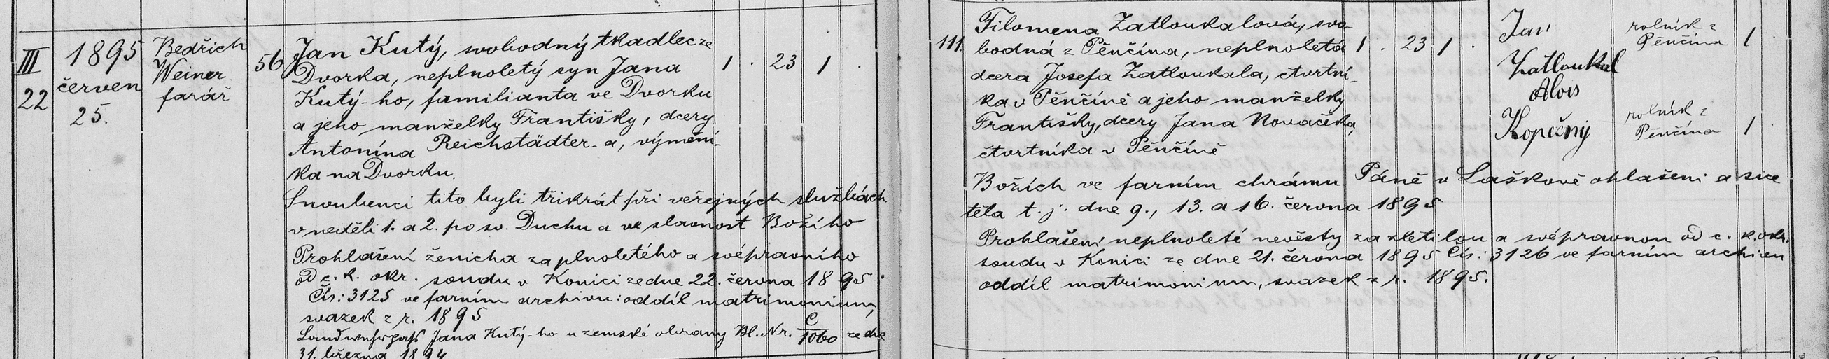 III
22
1895
červen
25.
Bedřich
Weiner
farář
56
Jan Kutý, svobodný tkadlec ze
Dvorka, neplnoletý syn Jana
Kutý-ho, familianta ve Dvorku
a jeho manželky Františky, dcery
Antonína Reichstädter-a, výměn-
ka na Dvorku.
1 . 23 1 .
Snoubenci tito byli třikrát při veřejných službách
v neděli 1. a 2. po sv. Duchu a ve slavnost Božího
Prohlášení ženicha za plnoletého a svéprávního
od c. k. okr. soudu v Konici ze dne 22. června 1895
Čís: 3125 ve farním archivu: oddíl matrimonium,
svazek z r. 1895
Jana Kutý-ho u zemské obrany Bl. Nr. C/1060 ze dne
31. března 1894
111.
Filomena Zatloukalová, svo-
bodná z Pěnčína, neplnoletá
dcera Josefa Zatloukala, čtvrtní-
ka v Pěnčíně a jeho manželky
Františky, dcery Jana Nováčka,
čtvrtníka v Pěnčíně
1 . 23 1 .
Jan
Zatloukal
rolník z
Pěnčína
1
Alois
Kopečný
rolník z
Pěnčína
1
Božích ve farním chrámu Páně v Laškově ohlašeni a sice
těla t. j. dne 9., 13. a 16. června 1895
Prohlášení neplnoleté nevěsty za zletilou a svéprávnou od c. k. okr.
soudu v Konici ze dne 21. června 1895 Čís: 3126 ve farním archivu
oddíl matrimonium, svazek z r. 1895.